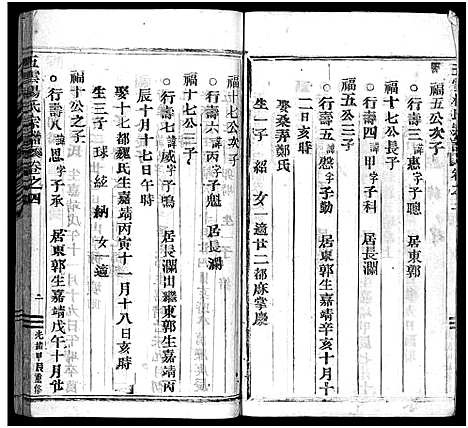 福五公次子
行壽三 謙惠字子聰
福十七公長子
行壽四 諱甲字子科 居長瀾
福五公三子
行壽五 諱愚字子應 居東郭生嘉靖辛亥十月十
二日亥時
娶桑弄鄭氏
生一子 紹 女一適廿二都麻掌慶
福十七公次子
行壽六 諱丙字子魁 居長瀾
福十七公三子
行壽七 諱威字子鳴 居長瀾出繼東郭生嘉靖丙
辰十月十七日午時
娶十七都魏氏生嘉靖丙寅十一月十八亥時
生三子 球 紘 納 女一適
福十公之子
行壽八 諱 字子承 居東郭生嘉靖戊午十月廿
五雲楊氏宗譜 卷之四
二
光緒甲辰重修